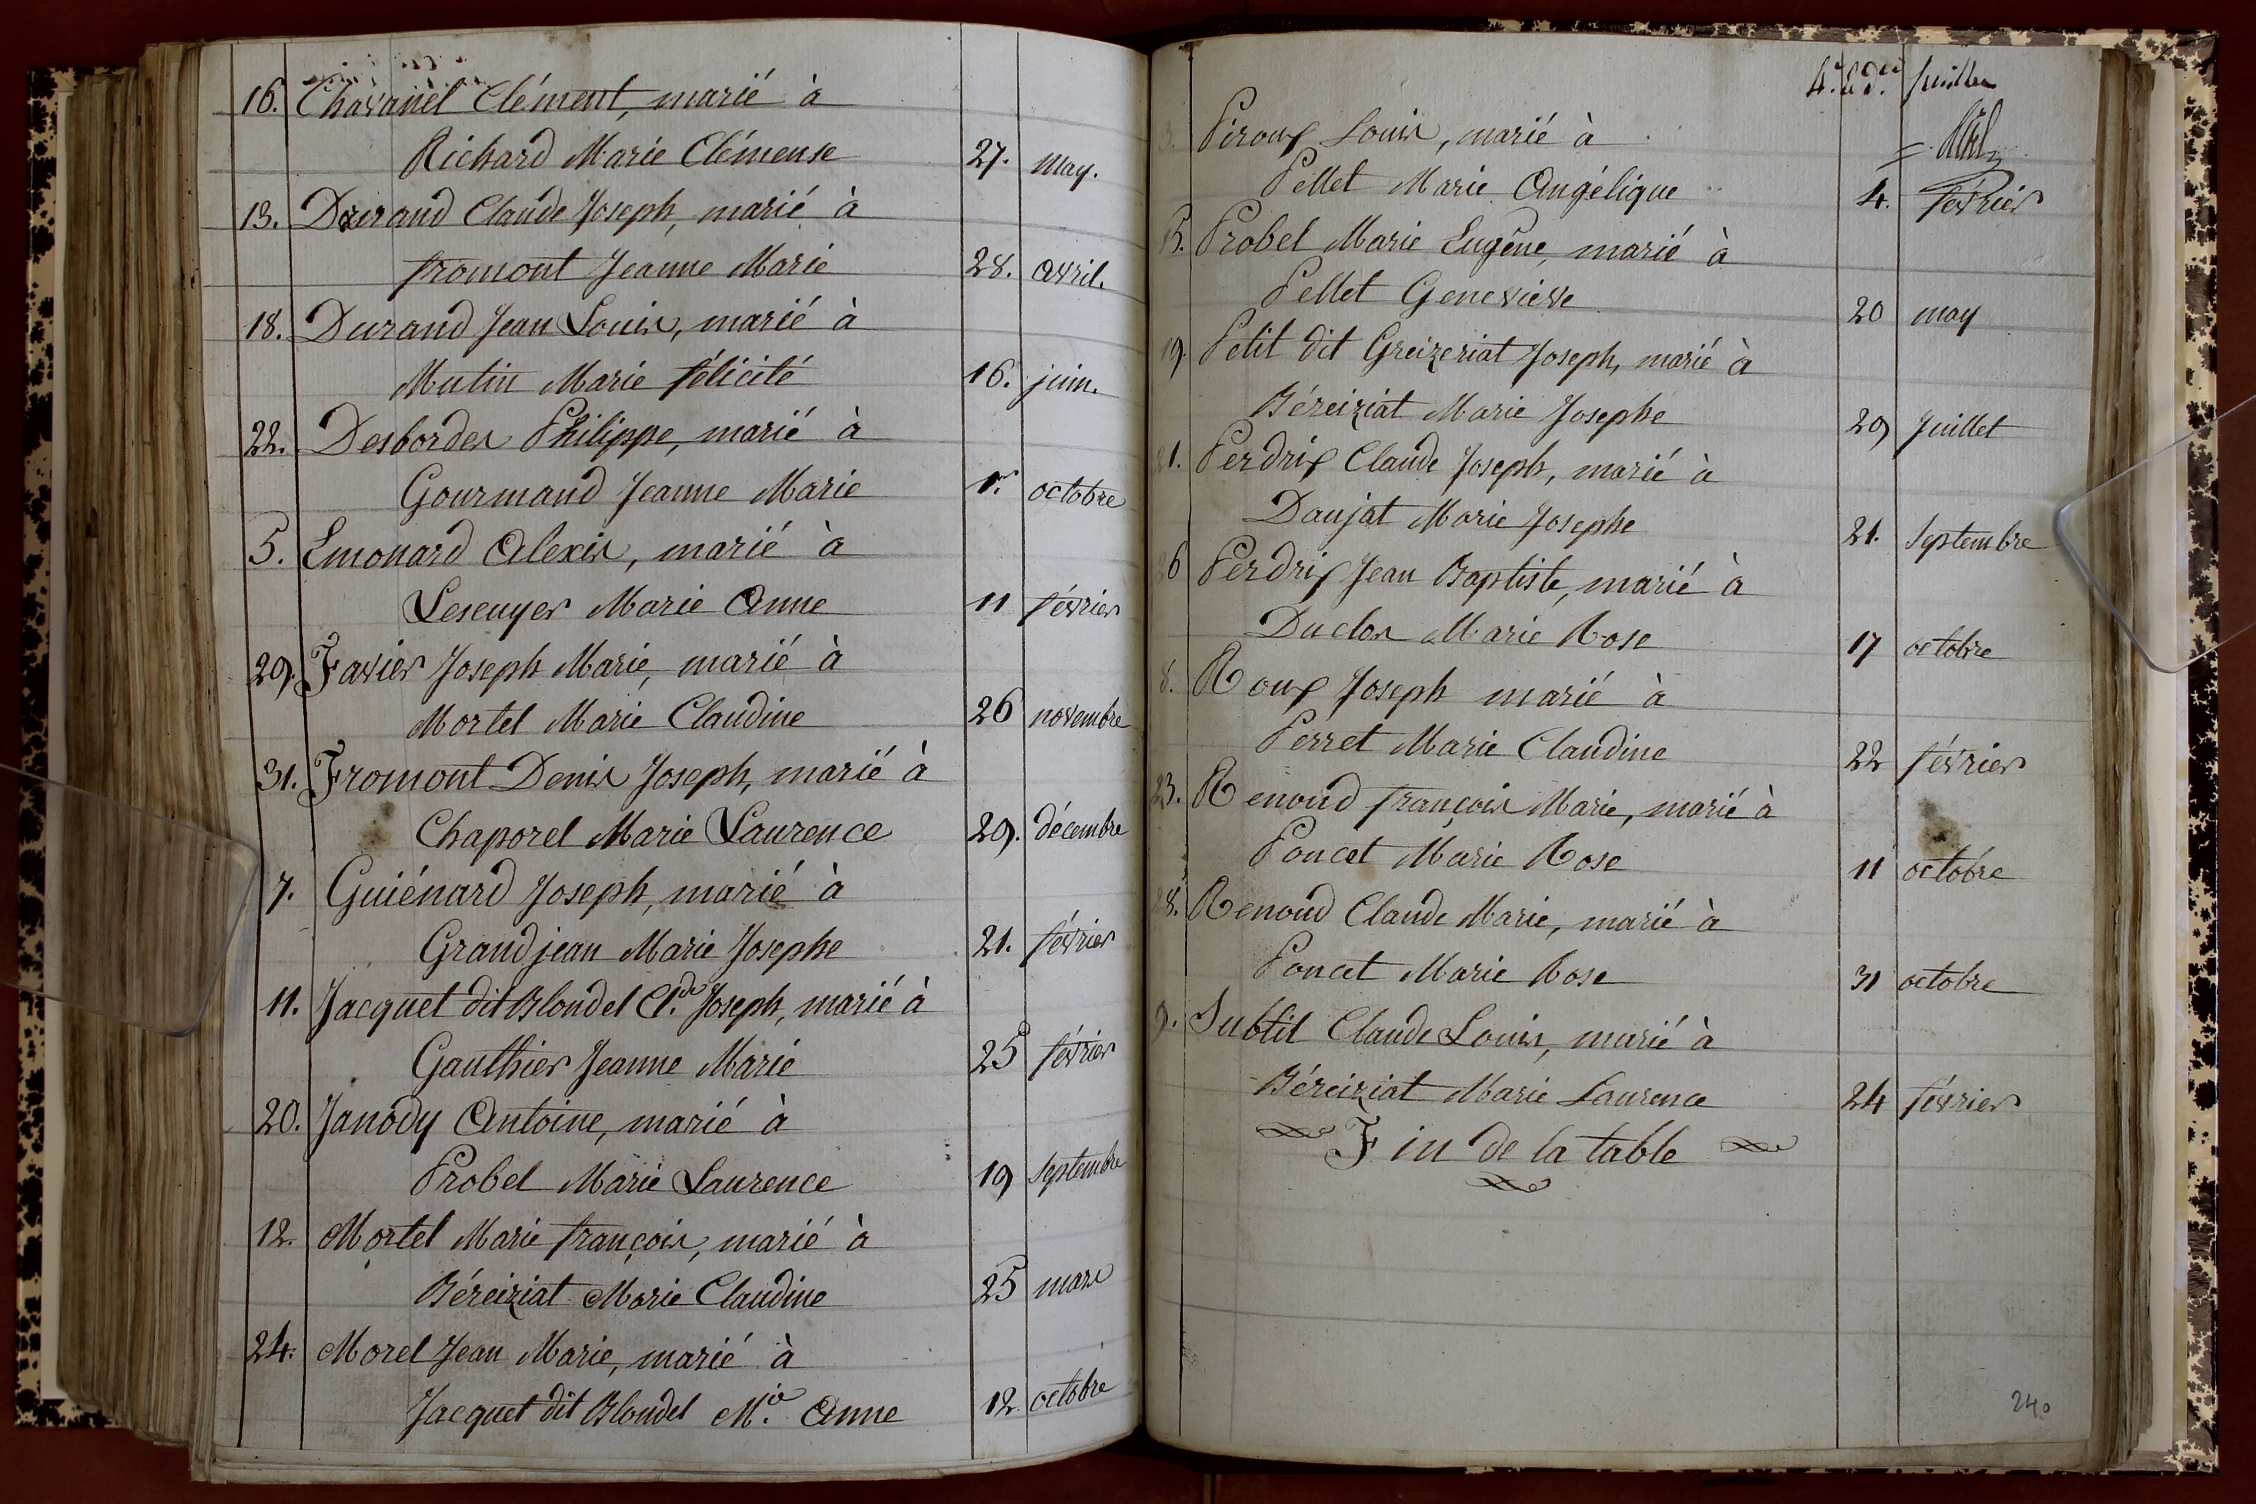 16. Chavanel Clément, marié à
Richard Marie Clémense 27. may.
13. Durand Claude Joseph, marié à
fromont Jeanne Marie 28. avril.
18. Durand Jean Louis, marié à
Mutin Marie félicité 16. juin.
22. Desbordes Philippe, marié à
Gourmand Jeanne Marie 1.er octobre
5. Emonard Alexis, marié à
Lescuyer Marie Anne 11 février
29. Favier Joseph Marie, marié à
Mortel Marie Claudine 26 novembre
31. Fromont Denis Joseph, marié à
Chaporel Marie Laurence 29. décembre
7. Guiénard Joseph, marié à
Grandjean Marie Josephe 21. février
11. Jacquet dit Blondel C.de Joseph, marié à
Gauthier Jeanne Marie 25 février
20. Janody Antoine, marié à
Probel Marie Laurence 19 Septembre
12. Mortel Marie françois, marié à
Béreiziat Marie Claudine 25 mars
24. Morel Jean Marie, marié à
Jacquet dit Blondel M.ie Anne 12 octobre
4.e
3. Piroux Louis, marié à
Pellet Marie Angélique 4. février
15. Probel Marie Eugêne, marié à
Pellet Genevieve 20 may
19. Petit dit Greizeriat Joseph, marié à
Béreiziat Marie Josephe 29 Juillet
21. Perdrix Claude Joseph, marié à
Daujat Marie Josephe 21. Septembre
26 Perdrix Jean Baptiste, marié à
Duclos Marie Rose 17 octobre
8. Roux Joseph marié à
Perret Marie Claudine 22 février
23. Renoud françois Marie, marié à
Poncet Marie Rose 11 octobre
28. Renoud Claude Marie, marié à
Poncet Marie Rose 31 octobre
9. Subtil Claude Louis, marié à
Béreiziat Marie Laurence 24 février
Fin de la table
240